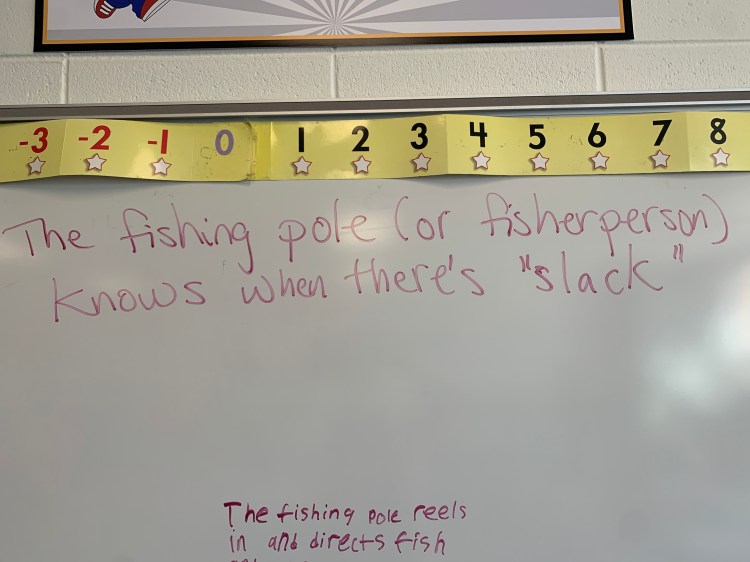 -3 -2 -1 0 1 2 3 4 5 6 7 8
The fishing pole (or fisherperson)
knows when there's "slack"
The fishing pole reels
in and directs fish